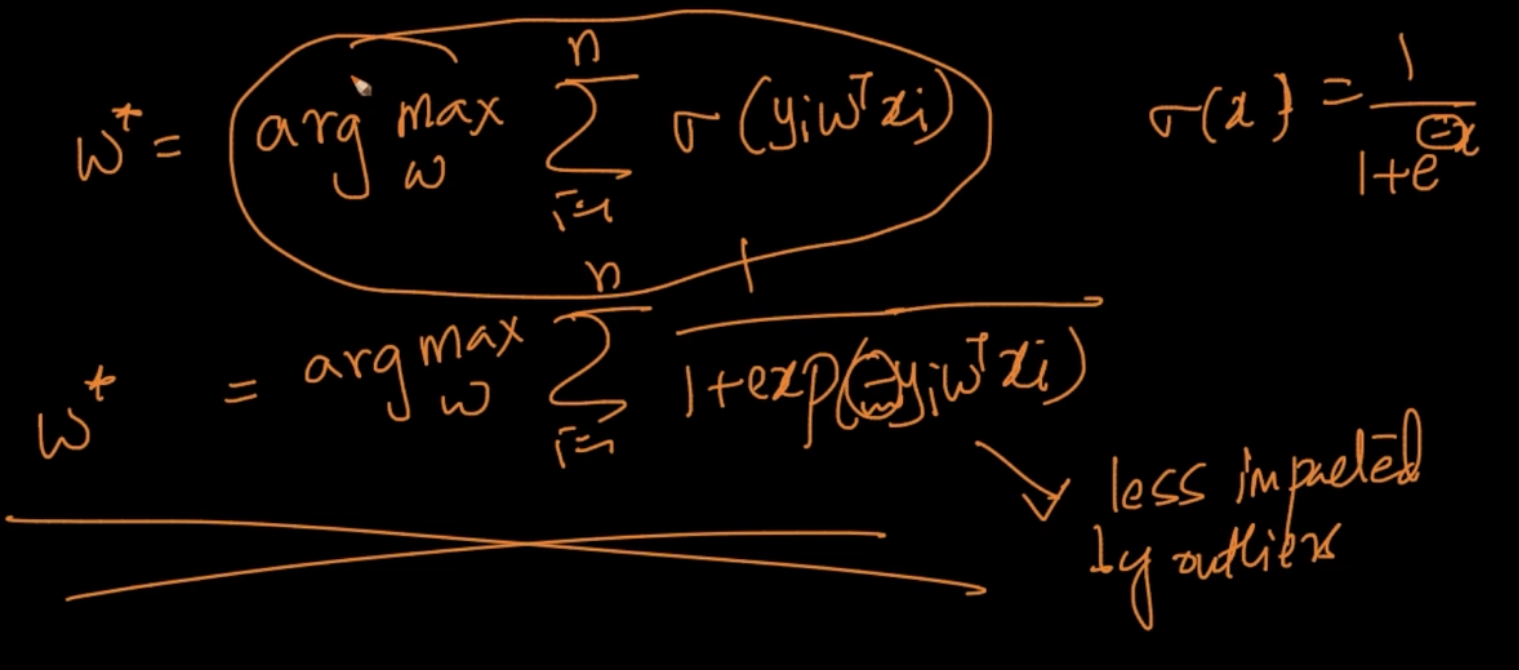 w* = arg max_w Σ_{i=1}^{n} σ(yᵢwᵀxᵢ)
σ(x) = 1/(1+e^{-x})
w* = arg max_w Σ_{i=1}^{n} 1/(1+exp(-yᵢwᵀxᵢ))
less impacted
by outliers